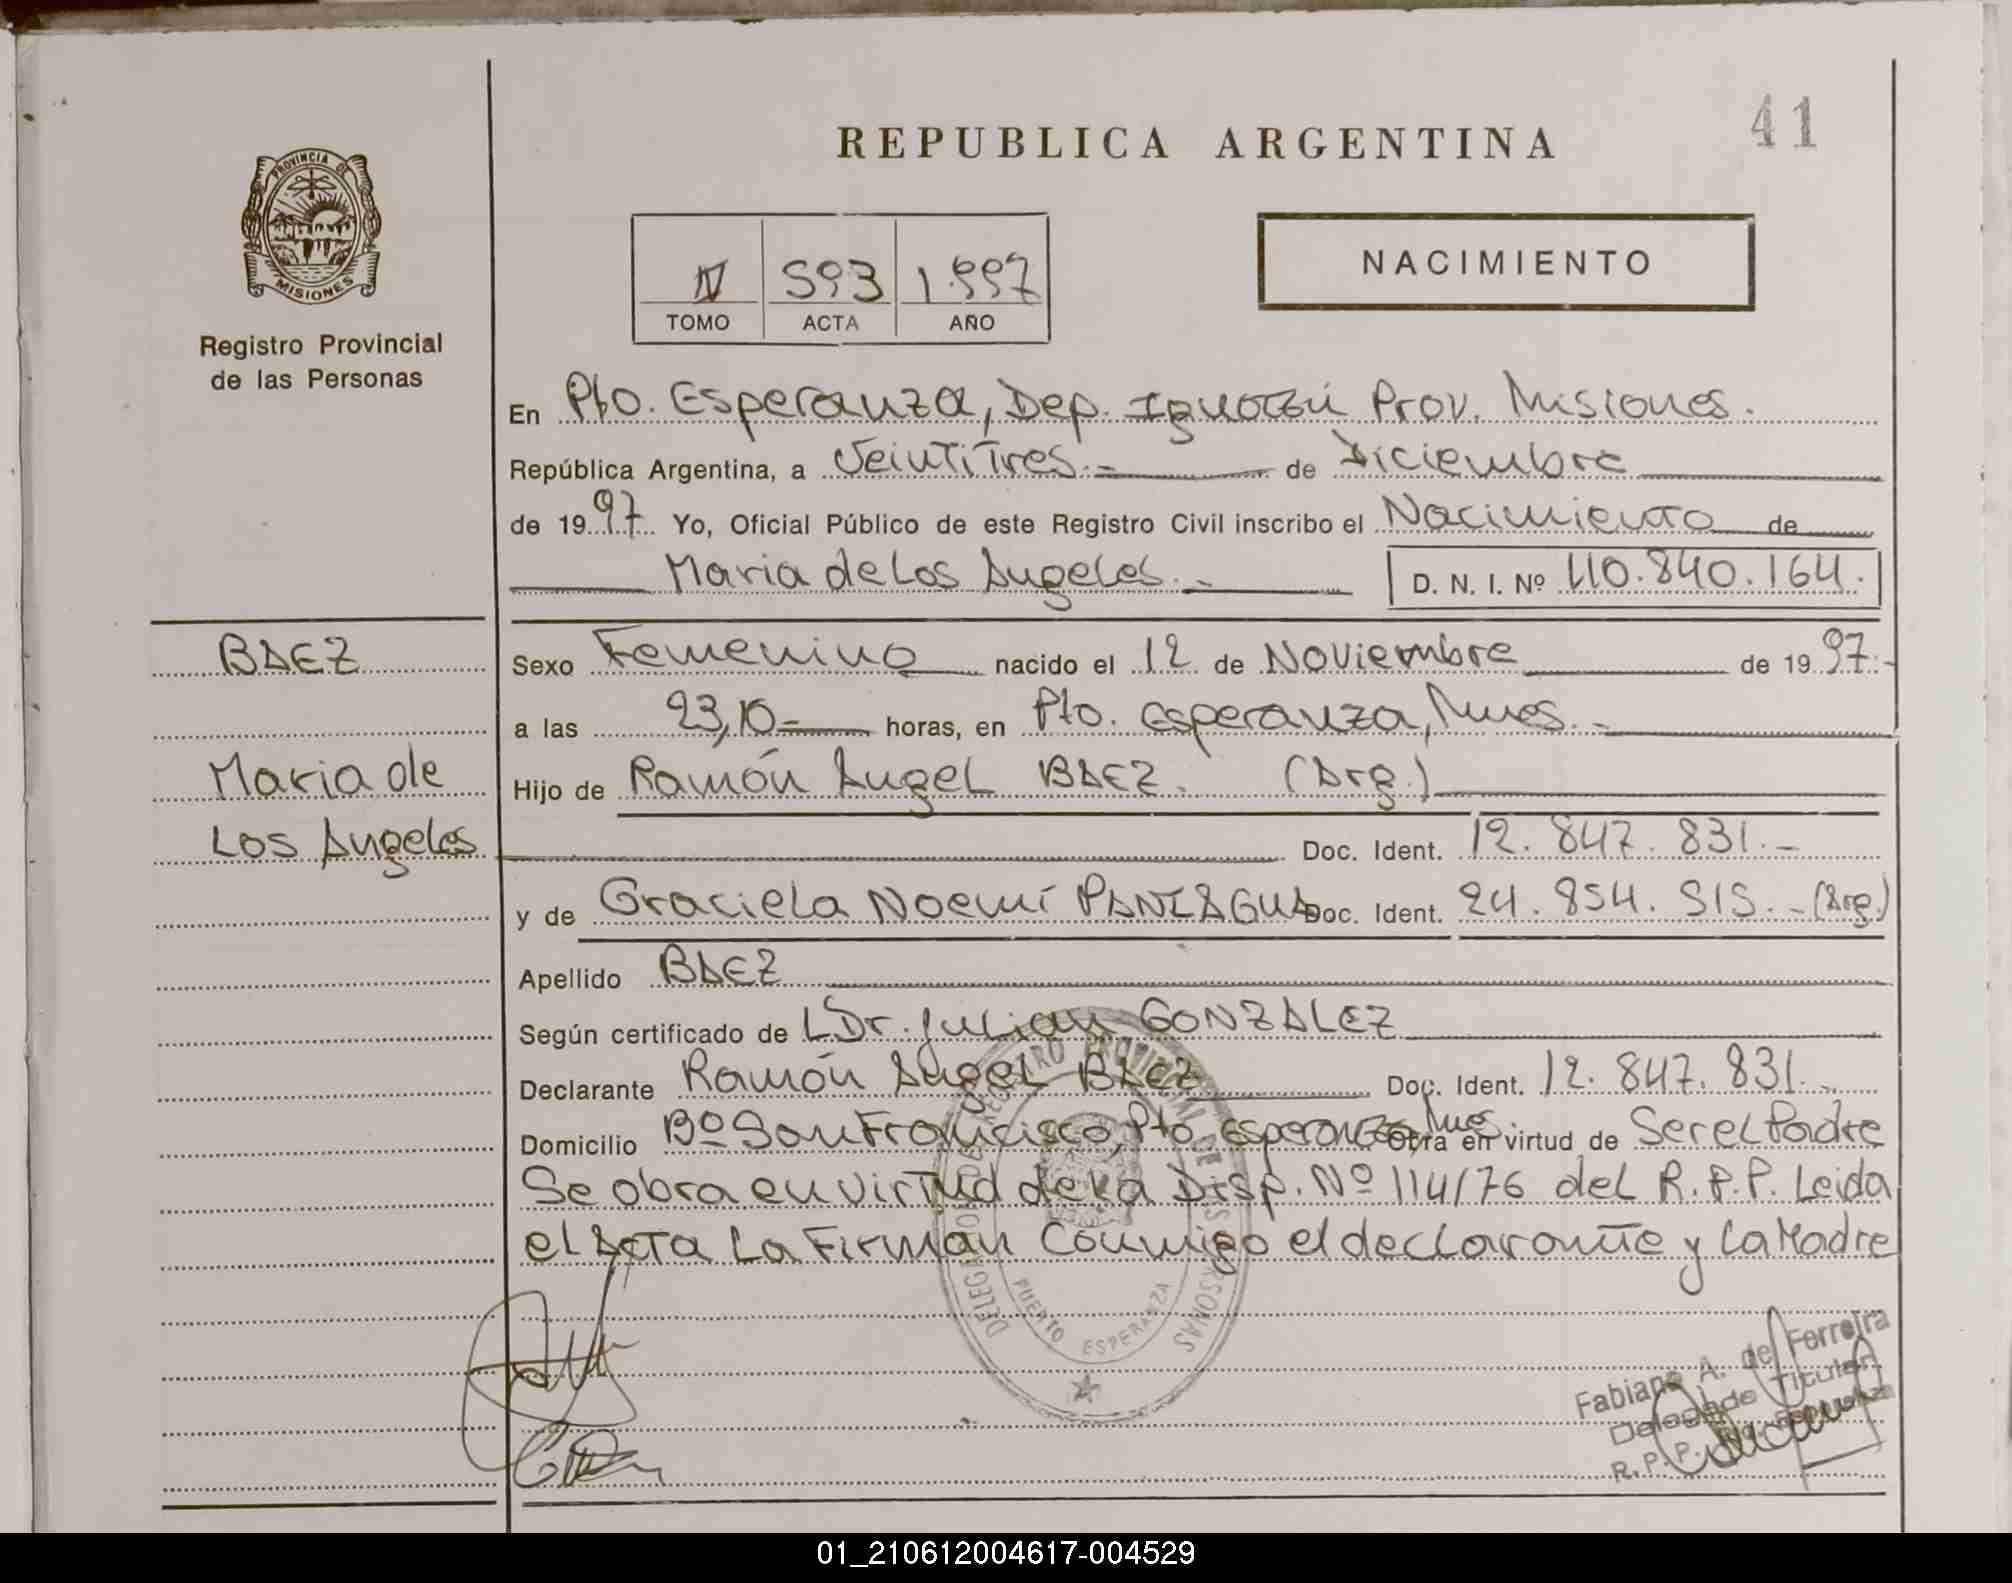 REPUBLICA ARGENTINA
41
PROVINCIA DE
MISIONES
Registro Provincial
de las Personas
IV 593 1.997
TOMO ACTA AÑO
NACIMIENTO
En Pto. Esperanza, Dep. Iguazú Prov. Misiones.
República Argentina, a Veintitres.- de Diciembre
de 1997 Yo, Oficial Público de este Registro Civil inscribo el Nacimiento de
Maria de Los Angeles.- D. N. I. Nº 40.840.164.
BAEZ
Sexo Femenino nacido el 12 de Noviembre de 1997.-
a las 23,10 = horas, en Pto. Esperanza, Mnes.-
Maria de
Hijo de Ramón Angel BAEZ. (Arg.)
Los Angeles
Doc. Ident. 12.847.831.-
y de Graciela Noemí PANIAGUA Doc. Ident. 24.854.515.-(Arg.)
Apellido BAEZ
Según certificado de LDr. Julian GONZALEZ
Declarante Ramón Angel BAEZ Doc. Ident. 12.847.831.-
Domicilio Bº San Francisco, Pto Esperanza, Mnes. Obra en virtud de Ser el Padre
Se obra en virtud de la Disp. Nº 114/76 del R.P.P. Leida
el Acta La Firman Conmigo el declarante y La Madre
DELEGACION REGISTRO PROVINCIAL DE LAS PERSONAS
PUERTO ESPERANZA
Fabiana A. de Ferreira
Delegada Titular
R.P.P. Pto. Esperanza
01_210612004617-004529